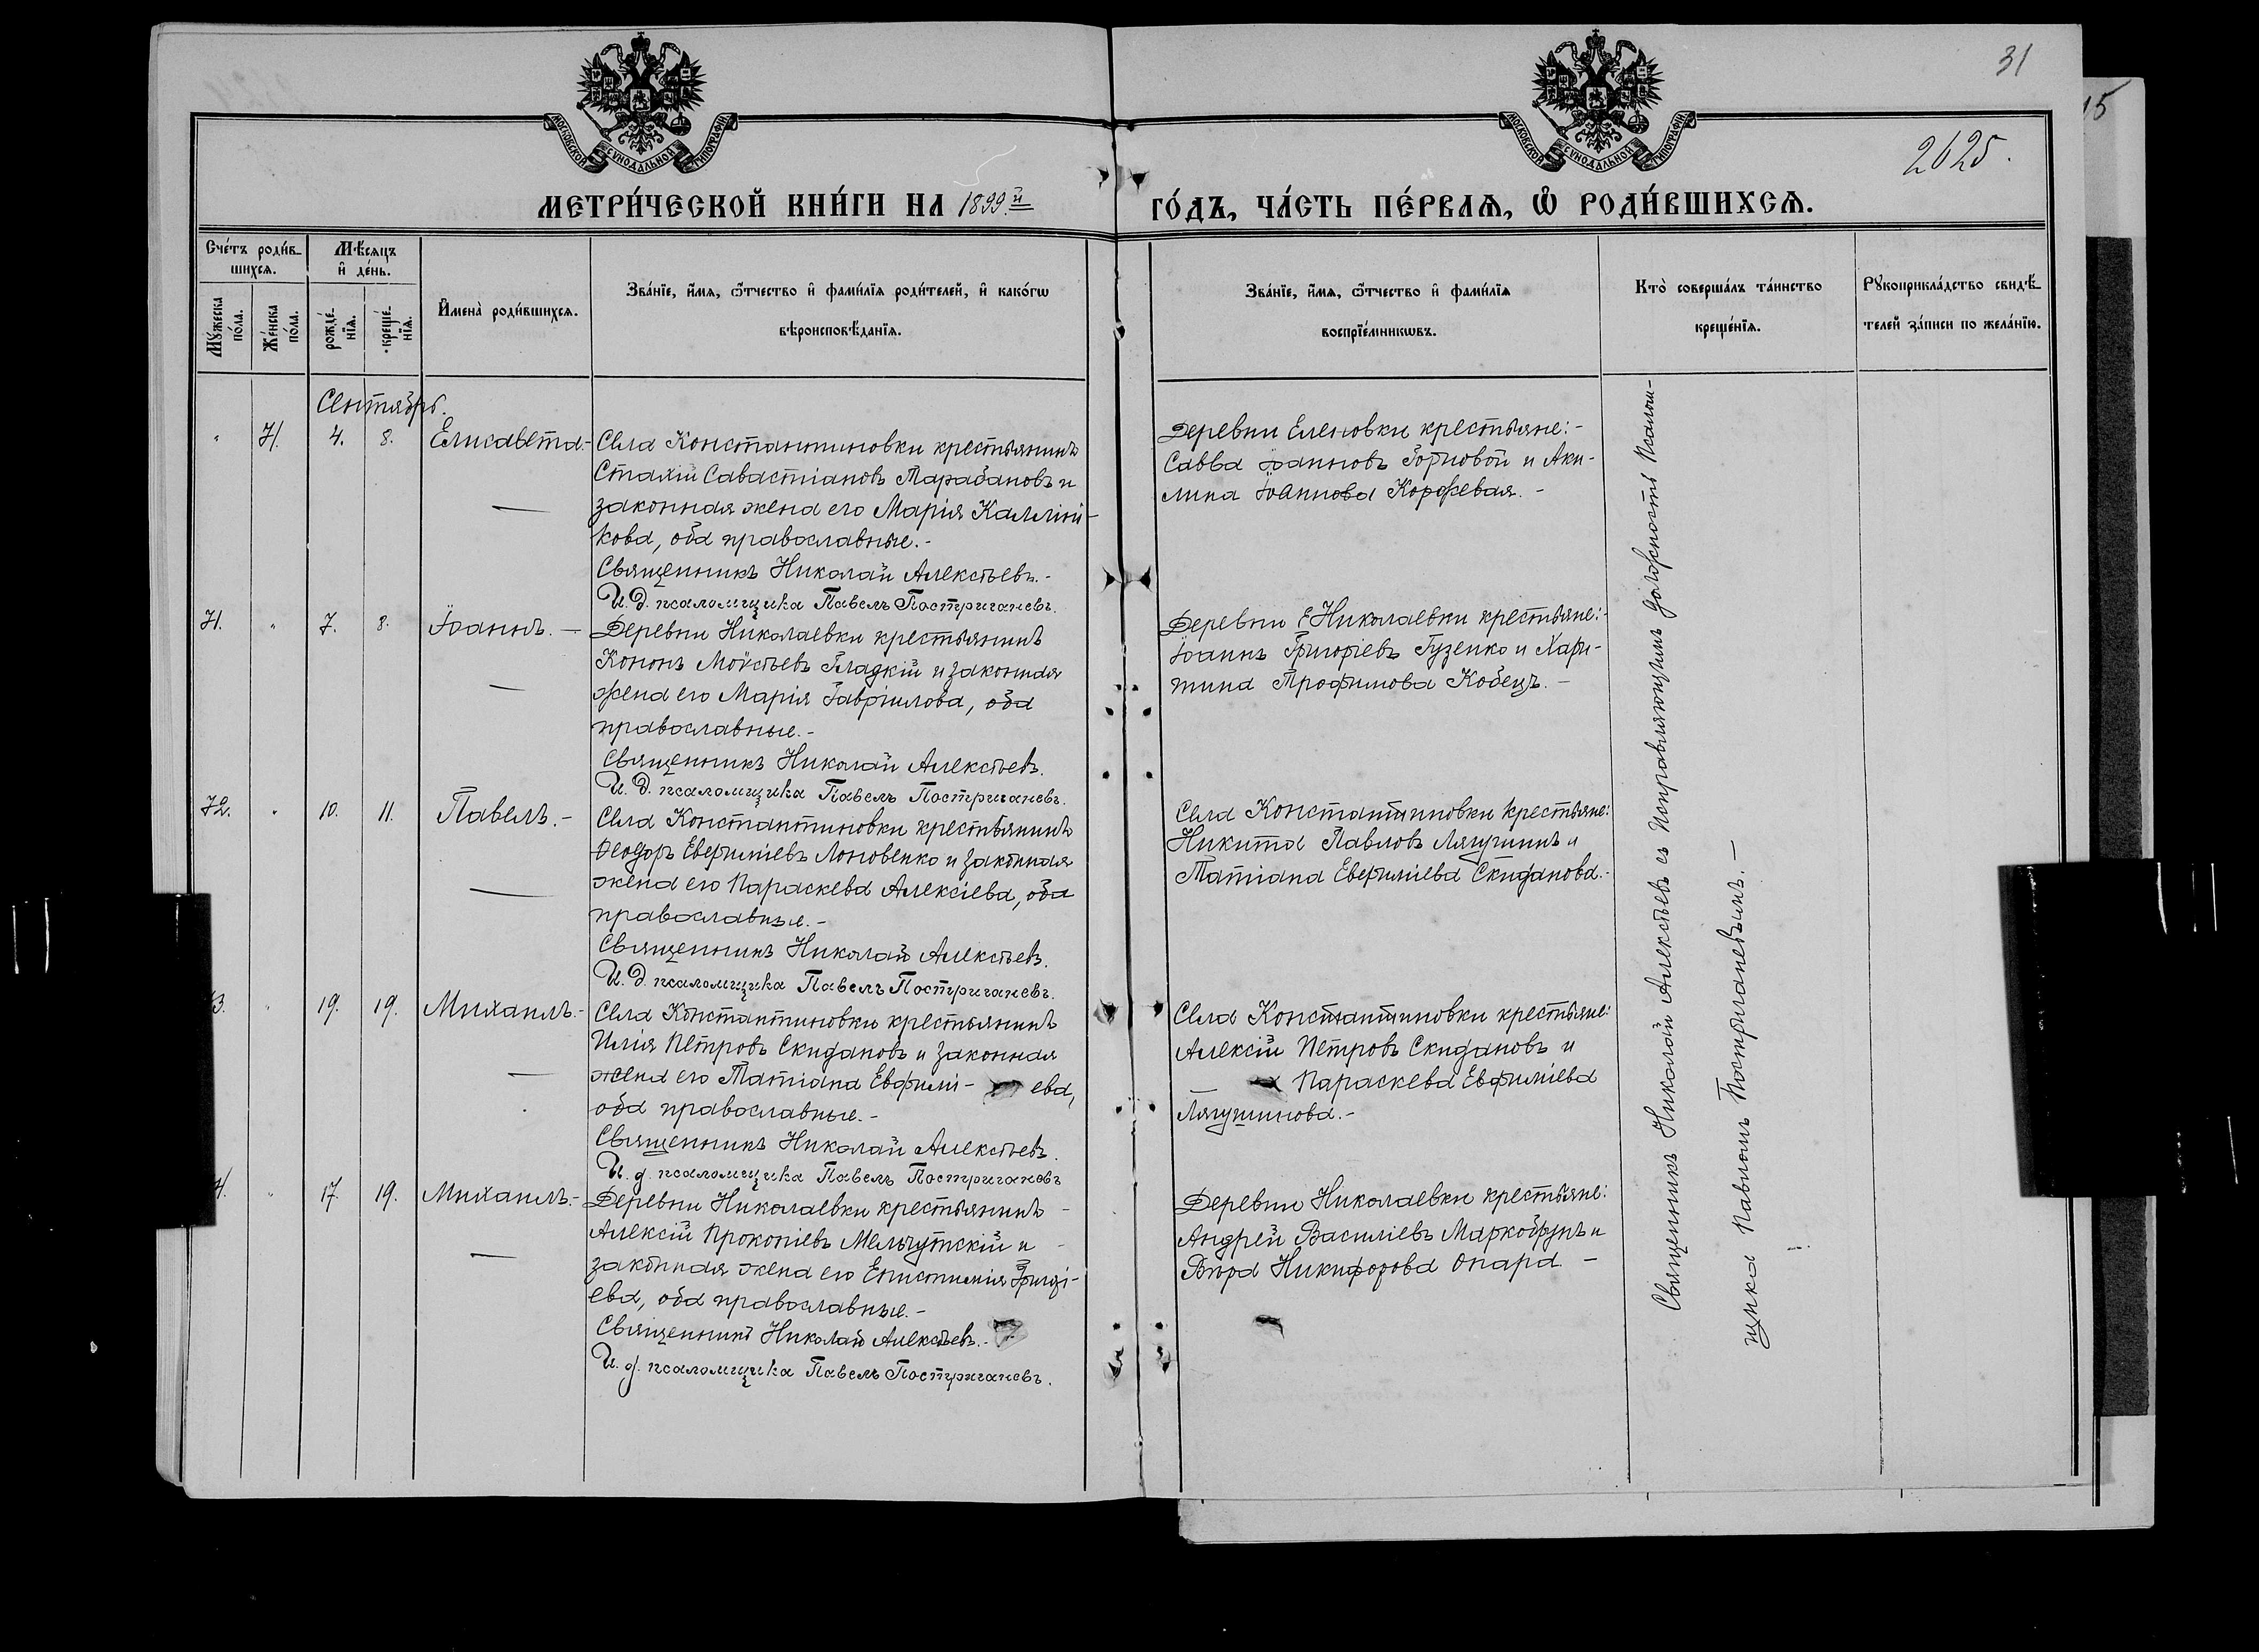 31
15
2625.
МОСКОВСКОЙ СѴНОДАЛЬНОЙ ТИПОГРАФІИ
МОСКОВСКОЙ СѴНОДАЛЬНОЙ ТИПОГРАФІИ
МЕТРИ́ЧЕСКОЙ КНИ́ГИ НА 1899.й ГО́ДЪ, ЧА́СТЬ ПЕ́РВАѦ, Ѽ РОДИ́ВШИХСѦ.
Сче́тъ роди́в-
шихсѧ.
Мꙋ́жеска
по́ла.
Же́нска
по́ла.
Мѣ́сѧцъ
и҆ де́нь.
рожде́-
нїѧ.
креще́-
нїѧ.
И҆мена̀ роди́вшихсѧ.
Зва́нїе, и҆́мѧ, ѻ҆́тчество и҆ фами́лїѧ роди́телей, и҆ како́гѡ
вѣроисповѣ́данїѧ.
Зва́нїе, и҆́мѧ, ѻ҆́тчество и҆ фами́лїѧ
воспрїе́мникѡвъ.
Кто̀ соверша́лъ та́инство
креще́нїѧ.
Рꙋкоприкла́дство свидѣ́-
телей за́писи по жела́нїю.
Сентябрь.
" 71. 4. 8. Елисавета.-
Села Константиновки крестьянинъ
Стахій Савастіановъ Марабановъ и
законная жена его Марія Калліни-
кова, оба православные.-
Священникъ Николай Алексѣевъ.-
И. д. псаломщика Павелъ Постригачевъ.
Деревни Еленовки крестьяне:-
Савва Іоанновъ Горповой и Аки-
лина Іоаннова Коржевая.-
71. " 7. 8. Іоаннъ.-
Деревни Николаевки крестьянинъ
Кононъ Моѵсѣевъ Гладкій и законная
жена его Марія Гавріилова, оба
православные.-
Священникъ Николай Алексѣевъ.
И. д. псаломщика Павелъ Постригачевъ.
Деревни Николаевки крестьяне:-
Іоаннъ Григоріевъ Гузенко и Хари-
тина Трофимова Кобецъ.-
72. " 10. 11. Павелъ.-
Села Константиновки крестьянинъ
Ѳеодоръ Евфиміевъ Лоновенко и законная
жена его Параскева Алексіева, оба
православные.-
Священникъ Николай Алексѣевъ.
И. д. псаломщика Павелъ Постригачевъ.
Села Константиновки крестьяне:
Никита Павловъ Лягушинъ и
Татіана Евфиміева Скиданова.-
3. " 19. 19. Михаилъ.-
Села Константиновки крестьянинъ
Илія Петровъ Скидановъ и законная
жена его Татіана Евфимі- ева,
оба православные.-
Священникъ Николай Алексѣевъ.
И. д. псаломщика Павелъ Постригачевъ
Села Константиновки крестьяне:
Алексій Петровъ Скидановъ и
Параскева Евфиміева
Лягушинова.-
4. " 17. 19. Михаилъ.-
Деревни Николаевки крестьянинъ
Алексій Прокопіевъ Мельгутскій и
законная жена его Епистимія Григорі-
ева, оба православные.-
Священникъ Николай Алексѣевъ.-
И. д. псаломщика Павелъ Постригачевъ.
Деревни Николаевки крестьяне:
Андрей Василіевъ Маркобрунъ и
Вѣра Никифорова Опара.-
Священникъ Николай Алексѣевъ съ исправляющимъ должность псалом-
щика Павломъ Постригачевымъ.-